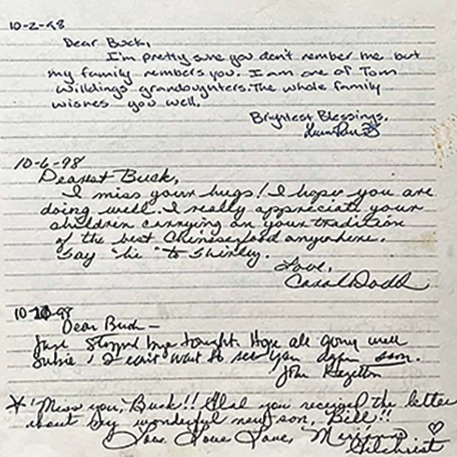 10-2-98
Dear Buck,
I'm pretty sure you don't rember me but
my family rembers you. I am one of Tom
Willdings grandoughters. The whole family
wishes you well,
Brightest Blessings,
10-6-98
Dearest Buck,
I miss your hugs! I hope you are
doing well. I really appreciate your
children carrying on your tradition
of the best Chinese food anywhere.
Say "hi" to Shirley.
Love,
Carol Dodd
Dear Buck -
Just stopped bye tonight. Hope all going well
Susie & I can't wait to see you again soon.
John
* Miss you, Buck!! Glad you received the letter
about my wonderful new son, Bill!!
Love Love Love,
Gilchrist